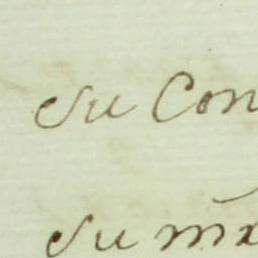 su Con
su mx